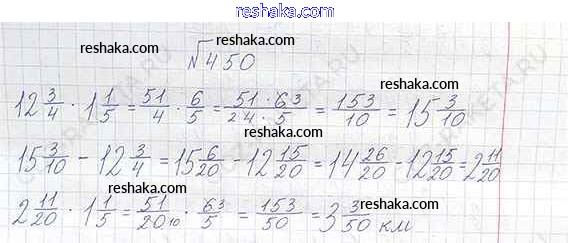 reshaka.com
reshaka.com
√450
reshaka.com reshaka.com
12 3/4 · 1 1/5 = 51/4 · 6/5 = 51 · 6 3/2 4 · 5 = 153/10 = 15 3/10
reshaka.com
15 3/10 - 12 3/4 = 15 6/20 - 12 15/20 = 14 26/20 - 12 15/20 = 2 11/20
reshaka.com reshaka.com
2 11/20 · 1 1/5 = 51/20 10 · 6 3/5 = 153/50 = 3 3/50 км
reshaka.com